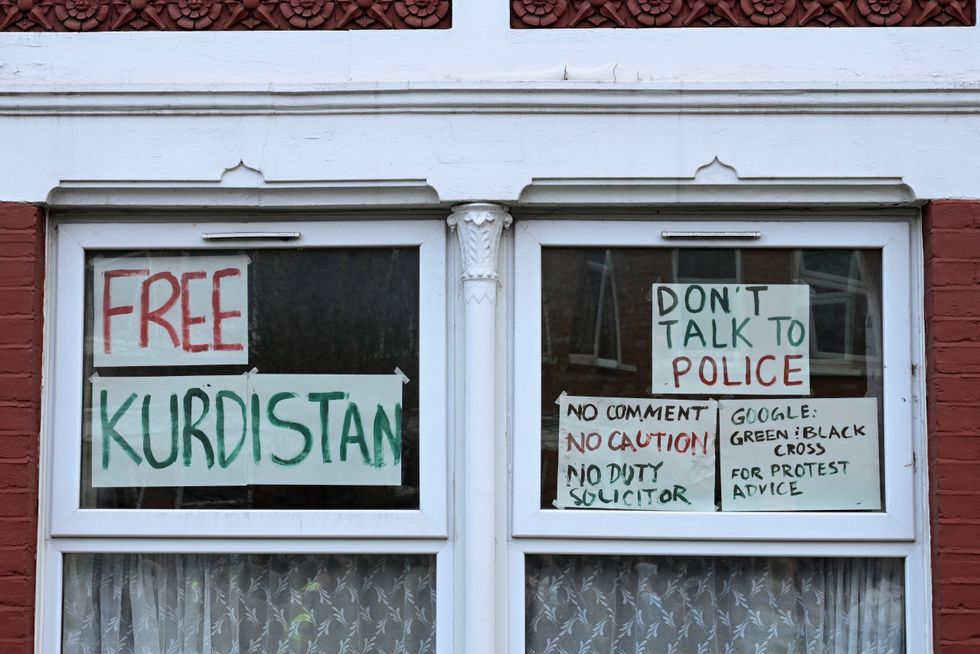 FREE
KURDISTAN
DON'T
TALK TO
POLICE
NO COMMENT
NO CAUTION
NO DUTY
SOLICITOR
GOOGLE:
GREEN & BLACK
CROSS
FOR PROTEST
ADVICE